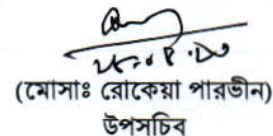 (মোসাঃ রোকেয়া পারভীন)
উপসচিব